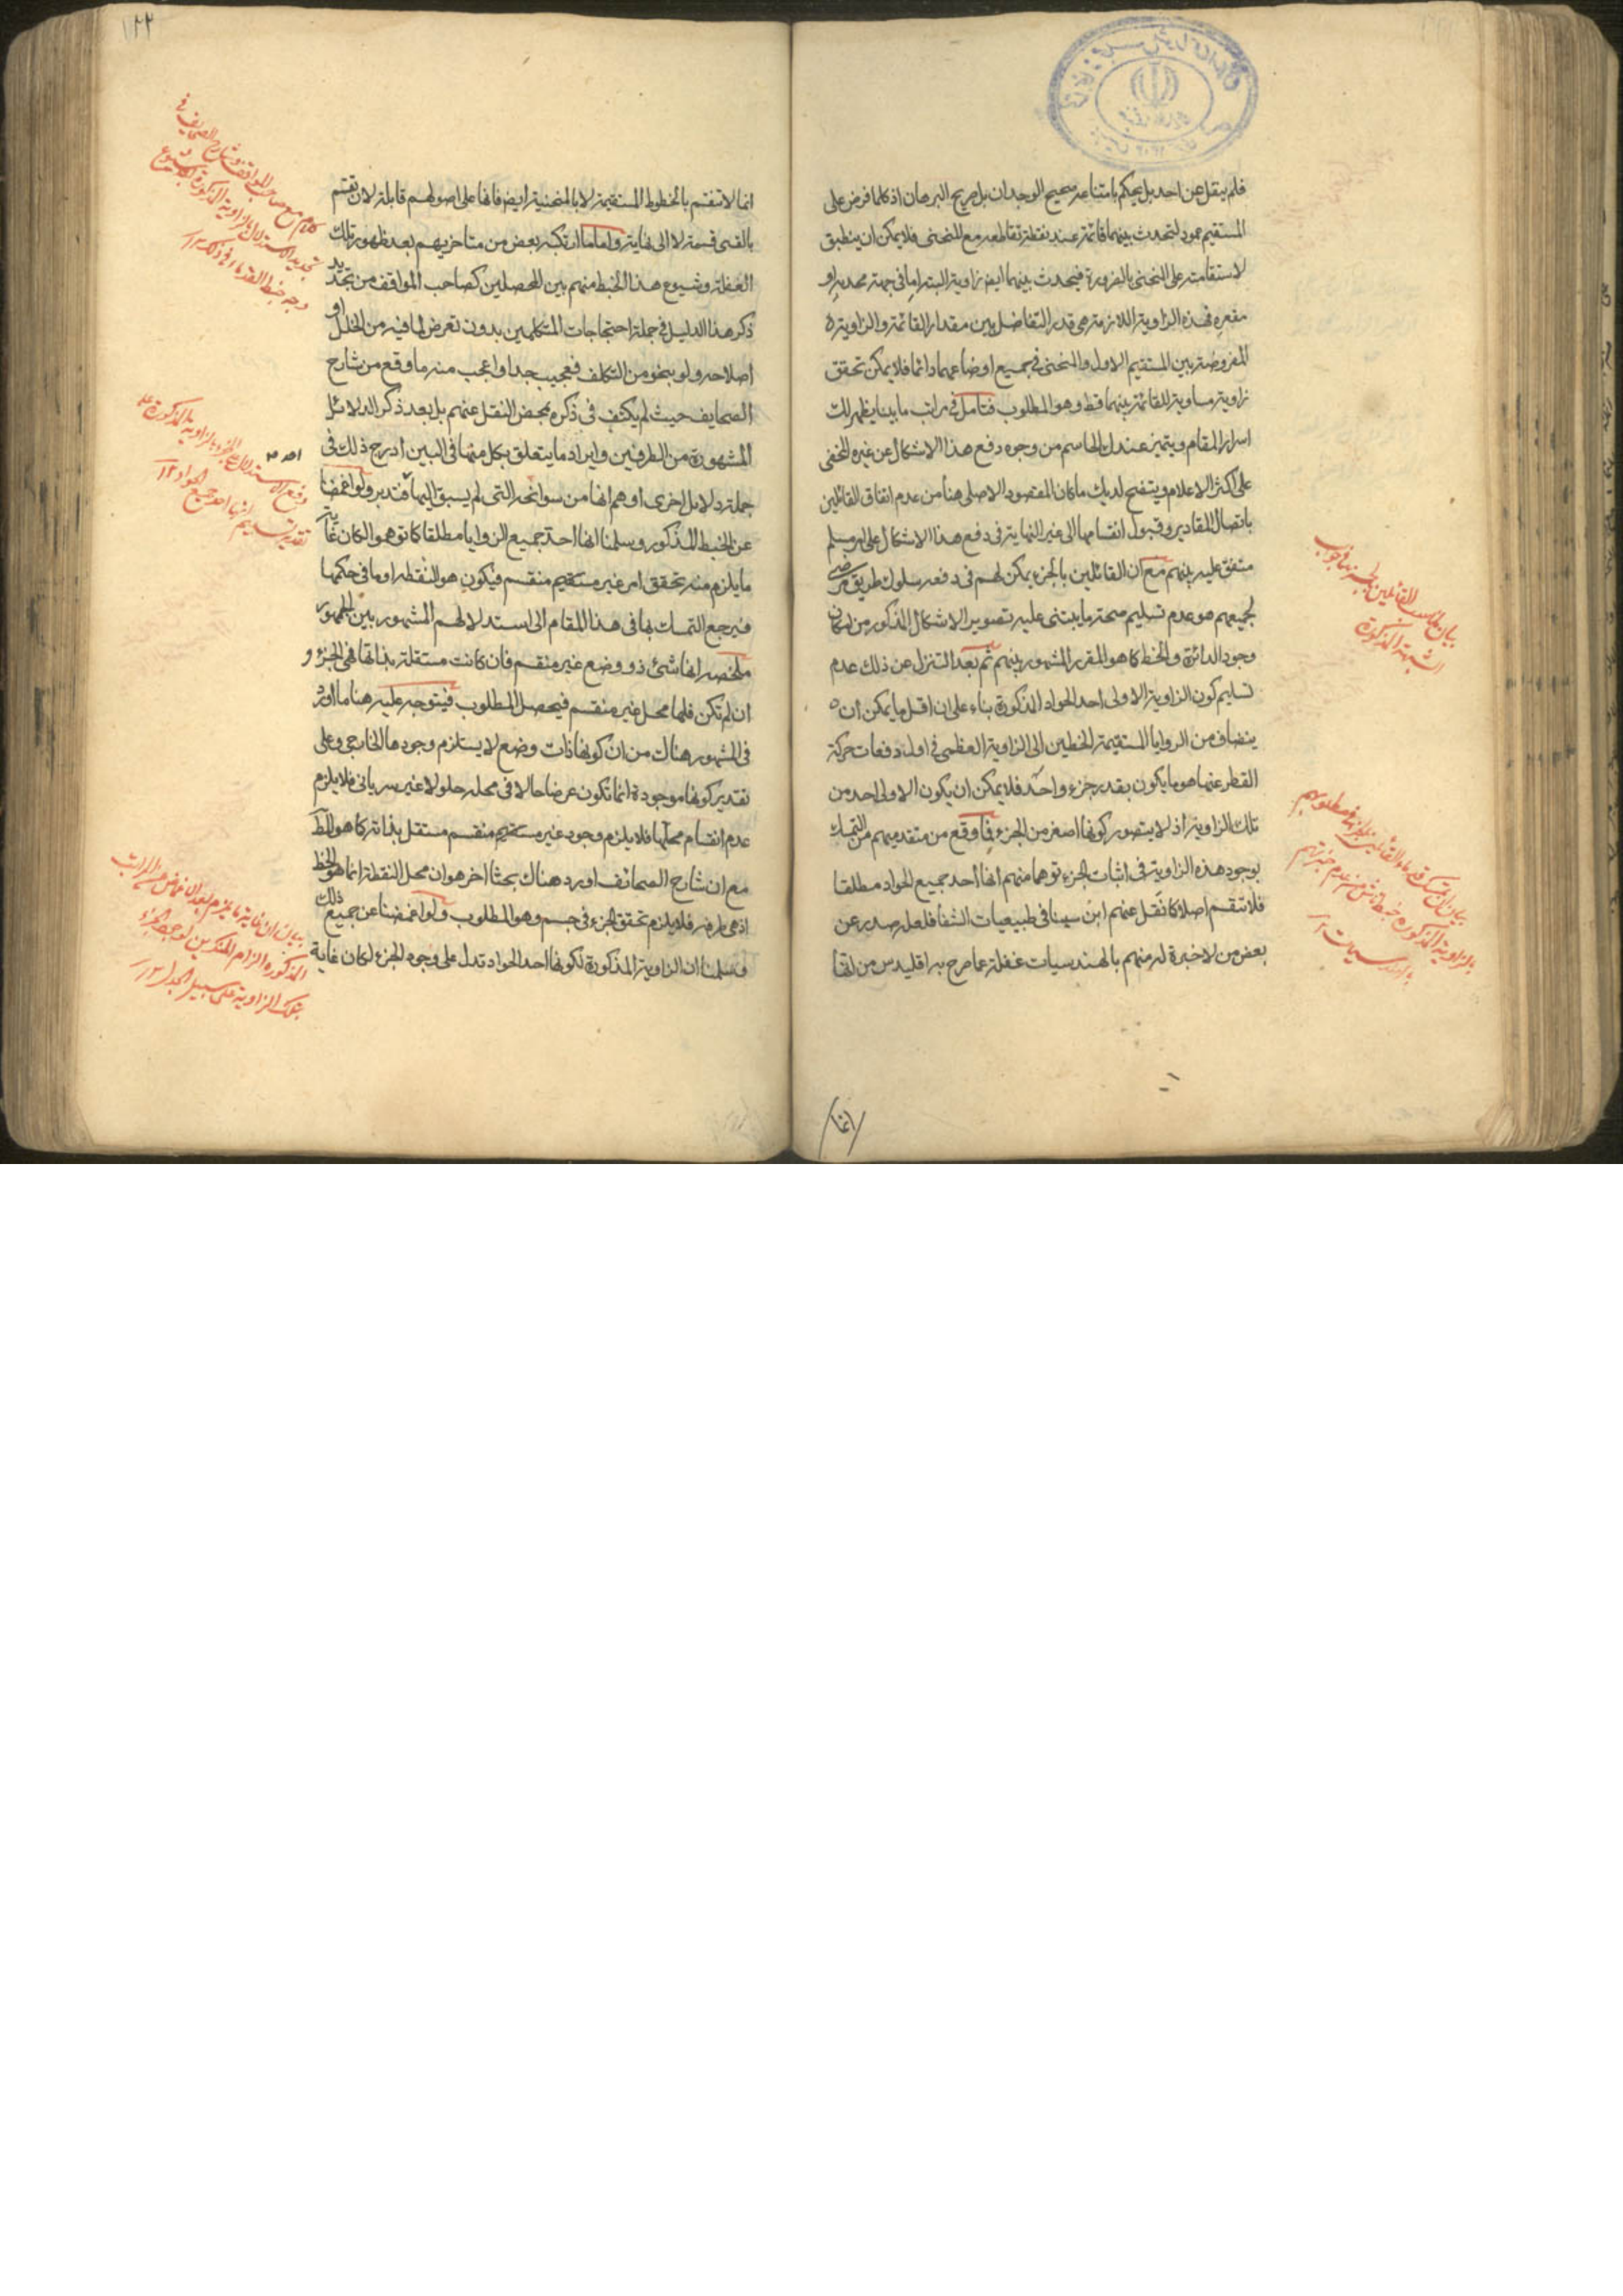 فلم ينقل عن احد بل يحكم بامتناعه صحيح الوجدان بل صريح البرهان اذ كلما فرض على
المستقيم عمود لتحدث بينهما قائمة عند نقطة تقاطعه مع المنحنى فلا يمكن ان ينطبق
لاستقامته على المنحنى بالضرورة فيحدث بينهما ايضا زاوية البتة اما في جهة محدبه او
مقعره فهذه الزاوية اللازمة هى قدر التفاضل بين مقدار القائمة والزاوية
المفروضة بين المستقيم الاول والمنحنى في جميع اوضاعهما دائما فلا يمكن تحقق
زاوية مساوية للقائمة بينهما قط وهو المطلوب فتامل في مراتب ما بينا يظهر لك
اسرار المقام ويتميز عندك الحاسم من وجوه دفع هذا الاشكال عن غيره المخفى
على اكثر الاعلام ويتضح لديك ما كان المقصود الاصلى هنا من عدم اتفاق القائلين
باتصال المقادير وقبول انقسامها الى غير النهاية في دفع هذا الاشكال على امر مسلم
متفق عليه بينهم مع ان القائلين بالجزء يمكن لهم فى دفعه سلوك طريق مرضى
لجميعهم هو عدم تسليم صحة ما يبتنى عليه تصوير الاشكال المذكور من امكان
وجود الدائرة والخط كما هو المقرر المشهور بينهم ثم بعد التنزل عن ذلك عدم
تسليم كون الزاوية الاولى احد الحواد المذكورة بناء على ان اقل ما يمكن ان
ينضاف من الزوايا المستقيمة الخطين الى الزاوية العظمى في اول دفعات حركة
القطر عنها هو ما يكون بقدر جزء واحد فلا يمكن ان يكون الاولى احد من
تلك الزاوية اذ لا يتصور كونها اصغر من الجزء فما وقع من متقدميهم من التمسك
بوجود هذه الزاوية فى اثبات الجزء توهما منهم انها احد جميع الحواد مطلقا
فلا تنقسم اصلا كما نقل عنهم ابن سينا فى طبيعيات الشفا فلعل صدره عن
بعض من لا خبرة له منهم بالهندسيات غفلة عما صرح به اقليدس من انها
انما
بيان
للقائلين
الشبهة المذكورة
بيان ان تمسك قدماء القائلين
بالزاوية المذكورة خبط
١٢٢
انما لا تنقسم بالخطوط المستقيمة لا بالمنحنية ايضا فانها على اصولهم قابلة لان تقسم
بالقسى قسمة لا الى نهاية واما ما ارتكبه بعض من متاخريهم بعد ظهور تلك
الغفلة وشيوع هذا الخبط منهم بين المحصلين كصاحب المواقف من تجديد
ذكر هذا الدليل فى جملة احتجاجات المتكلمين بدون تعرض لما فيه من الخلل او
اصلاحه ولو بنحو من التكلف فعجيب جدا واعجب منه ما وقع من شارح
الصحايف حيث لم يكتف فى ذكره بمحض النقل عنهم بل بعد ذكر الدلائل
المشهورة من الطرفين وايراد ما يتعلق بكل منها فى البين ادرج ذلك فى
جملة دلايل اخرى اوهم انها من سوانحه التى لم يسبق اليها فتدبر ولو اغمضنا
عن الخبط المذكور وسلمنا انها احد جميع الزوايا مطلقا كما توهمو لكان غاية
ما يلزم منه تحقق امر غير مستقيم منقسم فيكون هو النقطة او ما فى حكمها
فيرجع التمسك بها فى هذا المقام الى استدلالهم المشهور بين الجمهور
ملخصه انها شئ ذو وضع غير منقسم فان كانت مستقلة بذاتها فهى الجزء و
ان لم تكن فلها محل غير منقسم فيحصل المطلوب فيتوجه عليه هنا ما اورد
فى المشهور هناك من ان كونها ذات وضع لا يستلزم وجودها الخارجى وعلى
تقدير كونها موجودة انما تكون عرضا حالا فى محله حلولا غير سريانى فلا يلزم
عدم انقسام محلها فلا يلزم وجود غير مستقيم منقسم مستقل بذاته كما هو المط
مع ان شارح الصحائف اورد هناك بحثا اخر هو ان محل النقطة انما هو الخط
اذ هى طرفه فلا يلزم تحقق الجزء فى جسم وهو المطلوب ولو اغمضنا عن جميع ذلك
وسلمنا ان الزاوية المذكورة لكونها احد الحواد تدل على وجود الجزء لكان غاية
كلام مع صاحب المواقف وشارح الصحايف فى
تجديد الاستدلال بالزاوية المذكورة
وجه خبط القدماء فى ذلك ١٢
دفع الاستدلال على الجزء بالزاوية المذكورة على
تقدير تسليم انها احد جميع الحواد ١٢
بيان ان غاية ما يلزم بعد الاغماض عن المراتب
المذكورة الزام المنكرين لوجود الجزء
بتلك الزاوية على سبيل الجدل ١٢